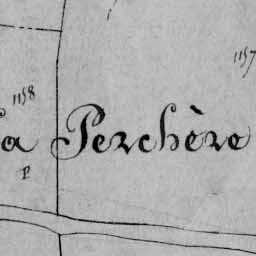 1157
1158
a Perchère
P